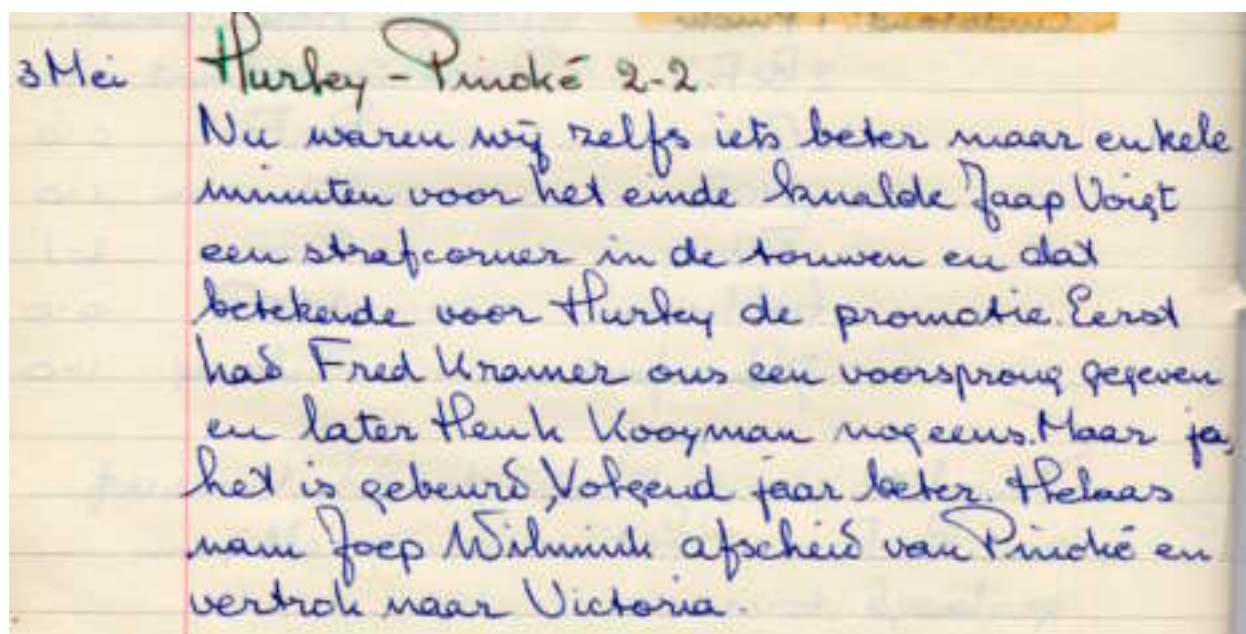 3 Mei Hurley - Pinoké 2-2
Nu waren wij zelfs iets beter maar enkele
minuten voor het einde knalde Jaap Voigt
een strafcorner in de touwen en dat
betekende voor Hurley de promotie. Eerst
had Fred Kramer ons een voorsprong gegeven
en later Henk Kooyman nog eens. Maar ja,
het is gebeurd, Volgend jaar beter. Helaas
nam Joep Wilmink afscheid van Pinoké en
vertrok naar Victoria.